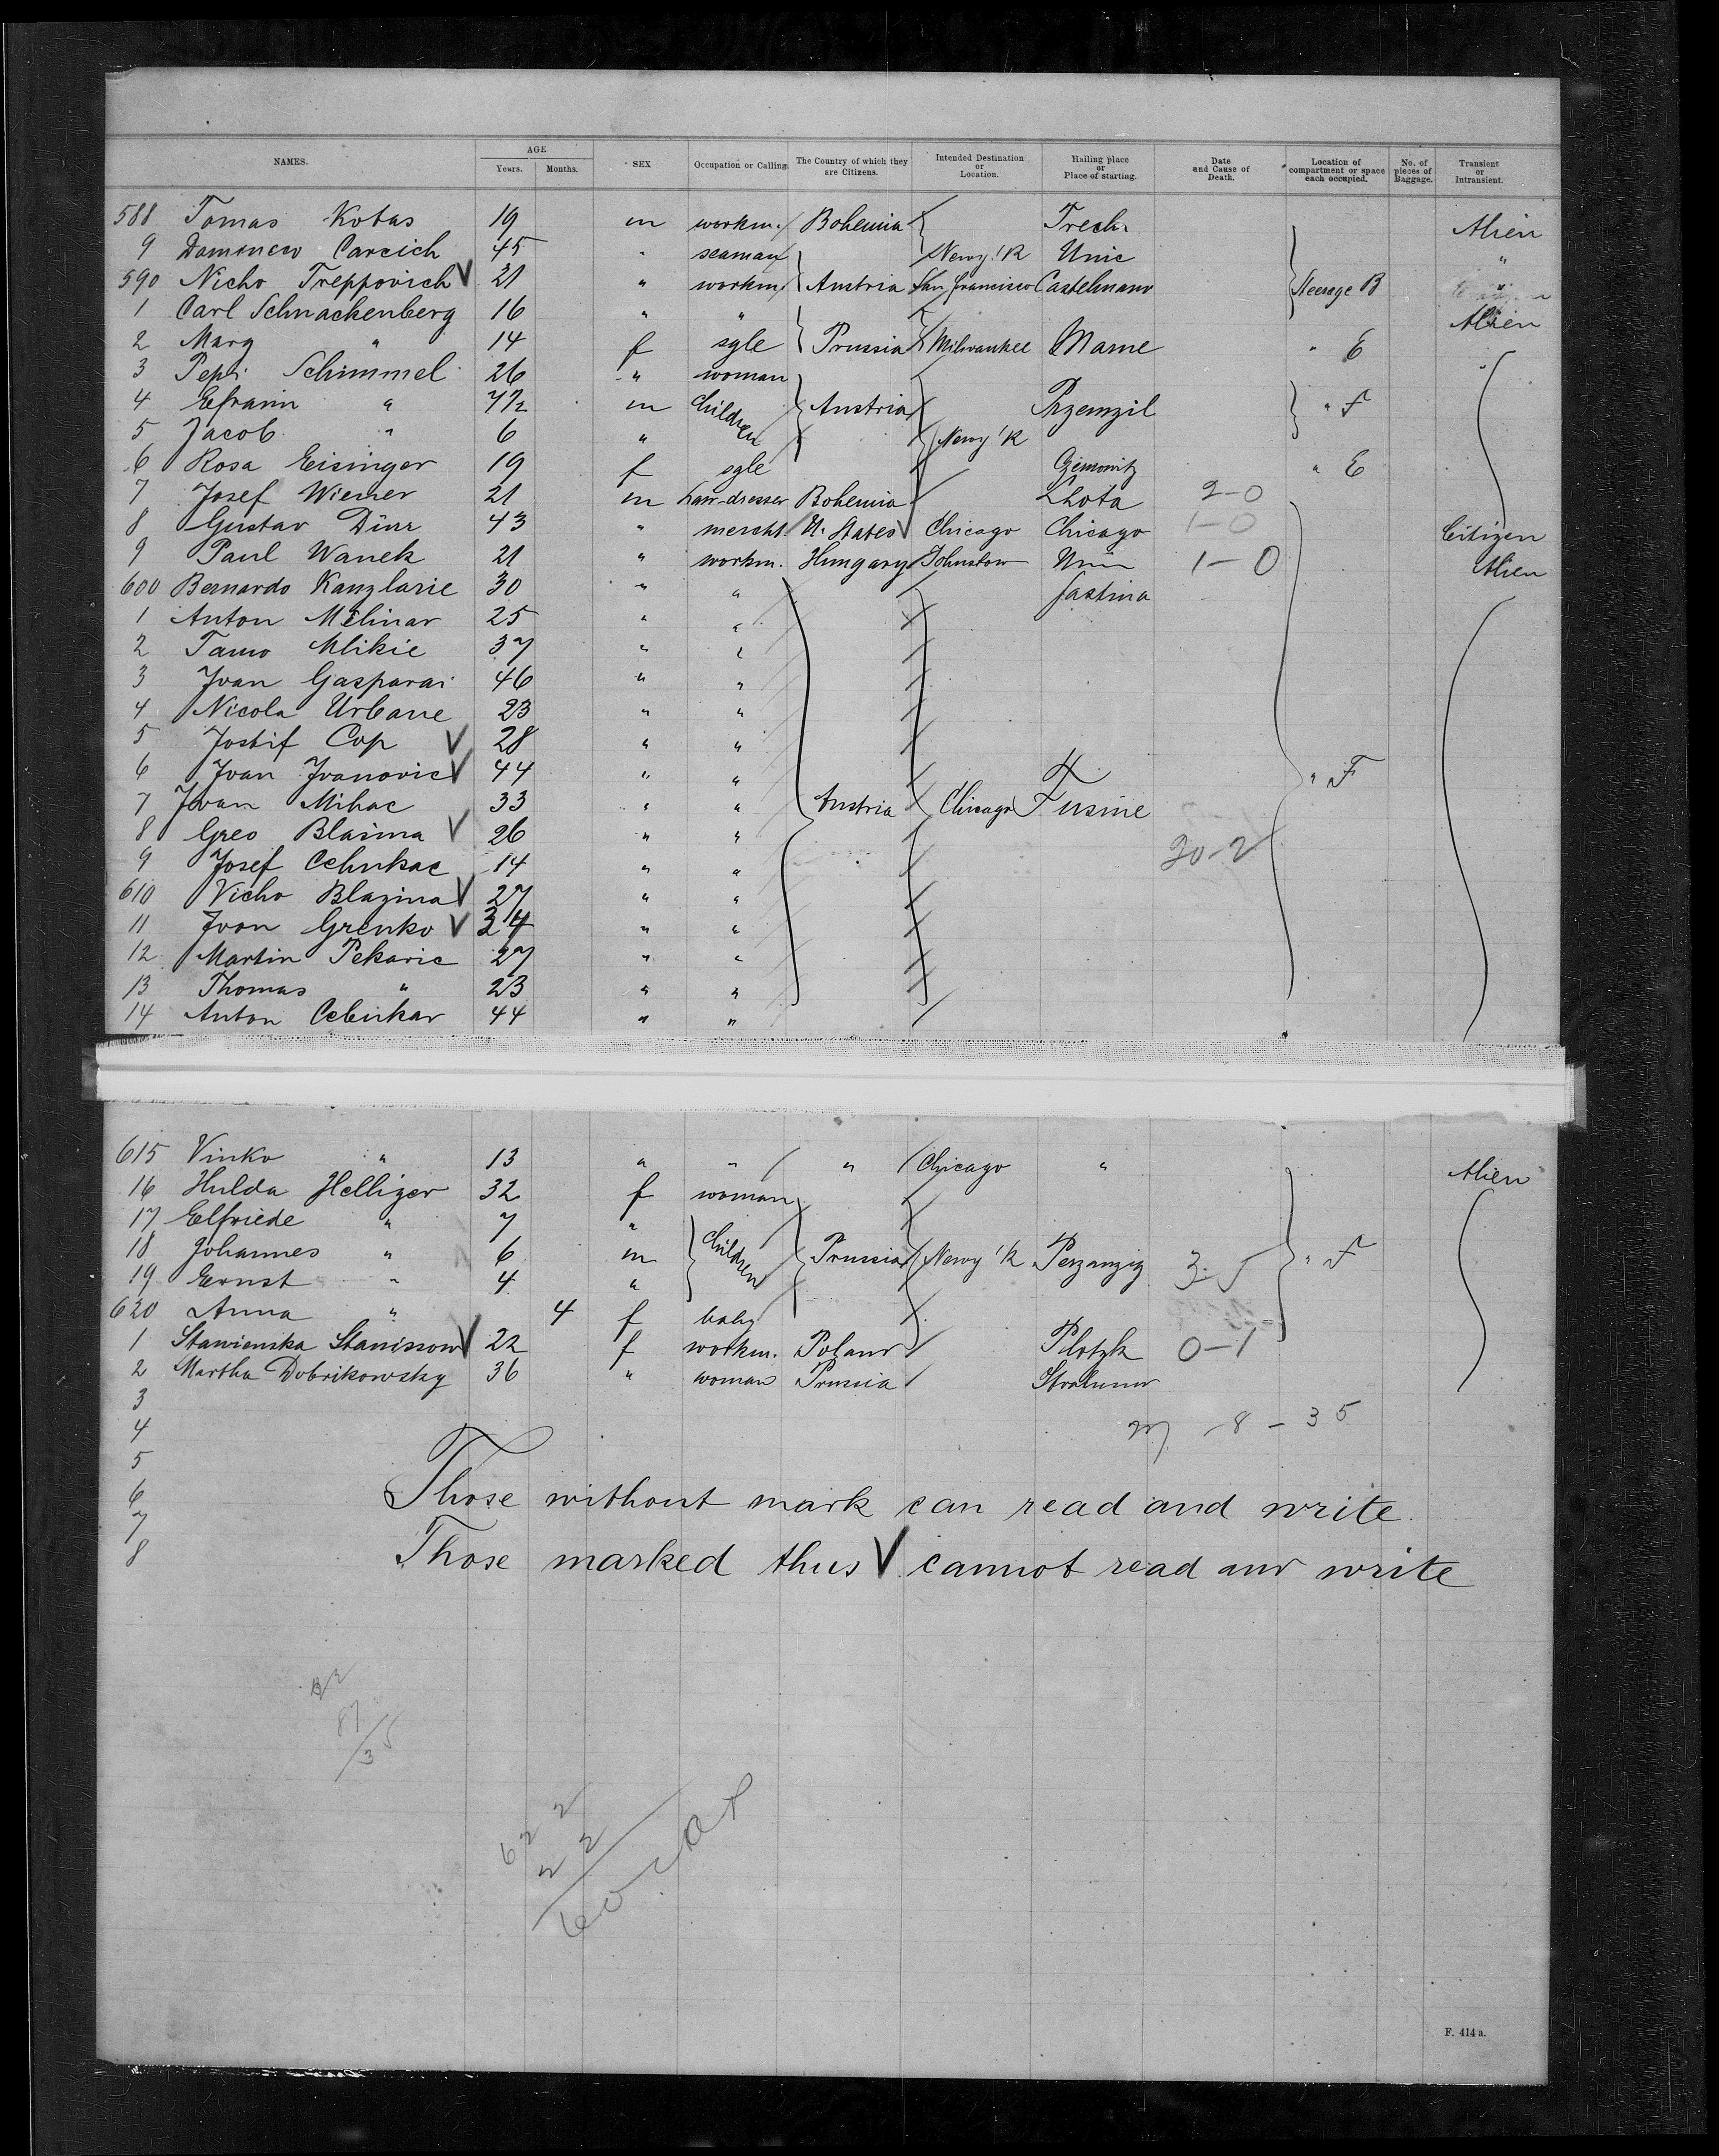 NAMES. AGE Years. Months. SEX Occupation or Calling. The Country of which they are Citizens. Intended Destination or Location. Hailing place or Place of starting. Date and Cause of Death. Location of compartment or space each occupied. No. of pieces of Baggage. Transient or Intransient.
588 Tomas Kotas 19 m workm. Bohemia Trech. Alien
9 Domenico Carcich 45 " seaman New Y'k Unie "
590 Nicho Treppovich V 21 " workm. Austria San Francisco Castelmano Steerage B
1 Carl Schnackenberg 16 " " Alien
2 Marg " 14 f sgle Prussia Milwaukee " E
3 Pepi Schimmel 26 " woman
4 Efraim " 7½ m Children Austria Przemzil " F
5 Jacob " 6 " New Y'k
6 Rosa Eisinger 19 f sgle " E
7 Josef Wiener 21 m hair-dresser Bohemia Lhota 2-0
8 Gustav Dürr 43 " mercht. U. States V Chicago Chicago 1-0 Citizen
9 Paul Wanek 21 " workm. Hungary Johnstow 1-0 Alien
600 Bernardo Kanzlarie 30 " " Fastina
1 Anton Melinar 25 " "
2 Tamo Mlikie 37 " "
3 Ivan Gasparai 46 " "
4 Nicola Urbane 23 " "
5 Jostif Cop V 28 " "
6 Ivan Ivanovic V 44 " " " F
7 Ivan Mihac 33 " " Austria Chicago Fusine
8 Greo Blasina V 26 " " 20-2
9 Josef Celukac 14 " "
610 Vicho Blazina V 27 " "
11 Ivan Grenko V 34 " "
12 Martin Pekaric 27 " "
13 Thomas " 23 " "
14 Anton Cebukar 44 " "
615 Vinko " 13 " " " Chicago " Alien
16 Hulda Helliger 32 f woman
17 Elfriede " 7 "
18 Johannes " 6 m Children Prussia New Y'k Perzanzig 3-5 " F
19 Ernst " 4 "
620 Anna " 4 f baby
1 Stanienska Stanissow V 22 f workm. Poland Plotzk 0-1
2 Martha Dobrikowsky 36 " woman Prussia
3
4 8 - 35
5
6 Those without mark can read and write.
7
8 Those marked thus V cannot read and write
87
35
622
22
F. 414 a.